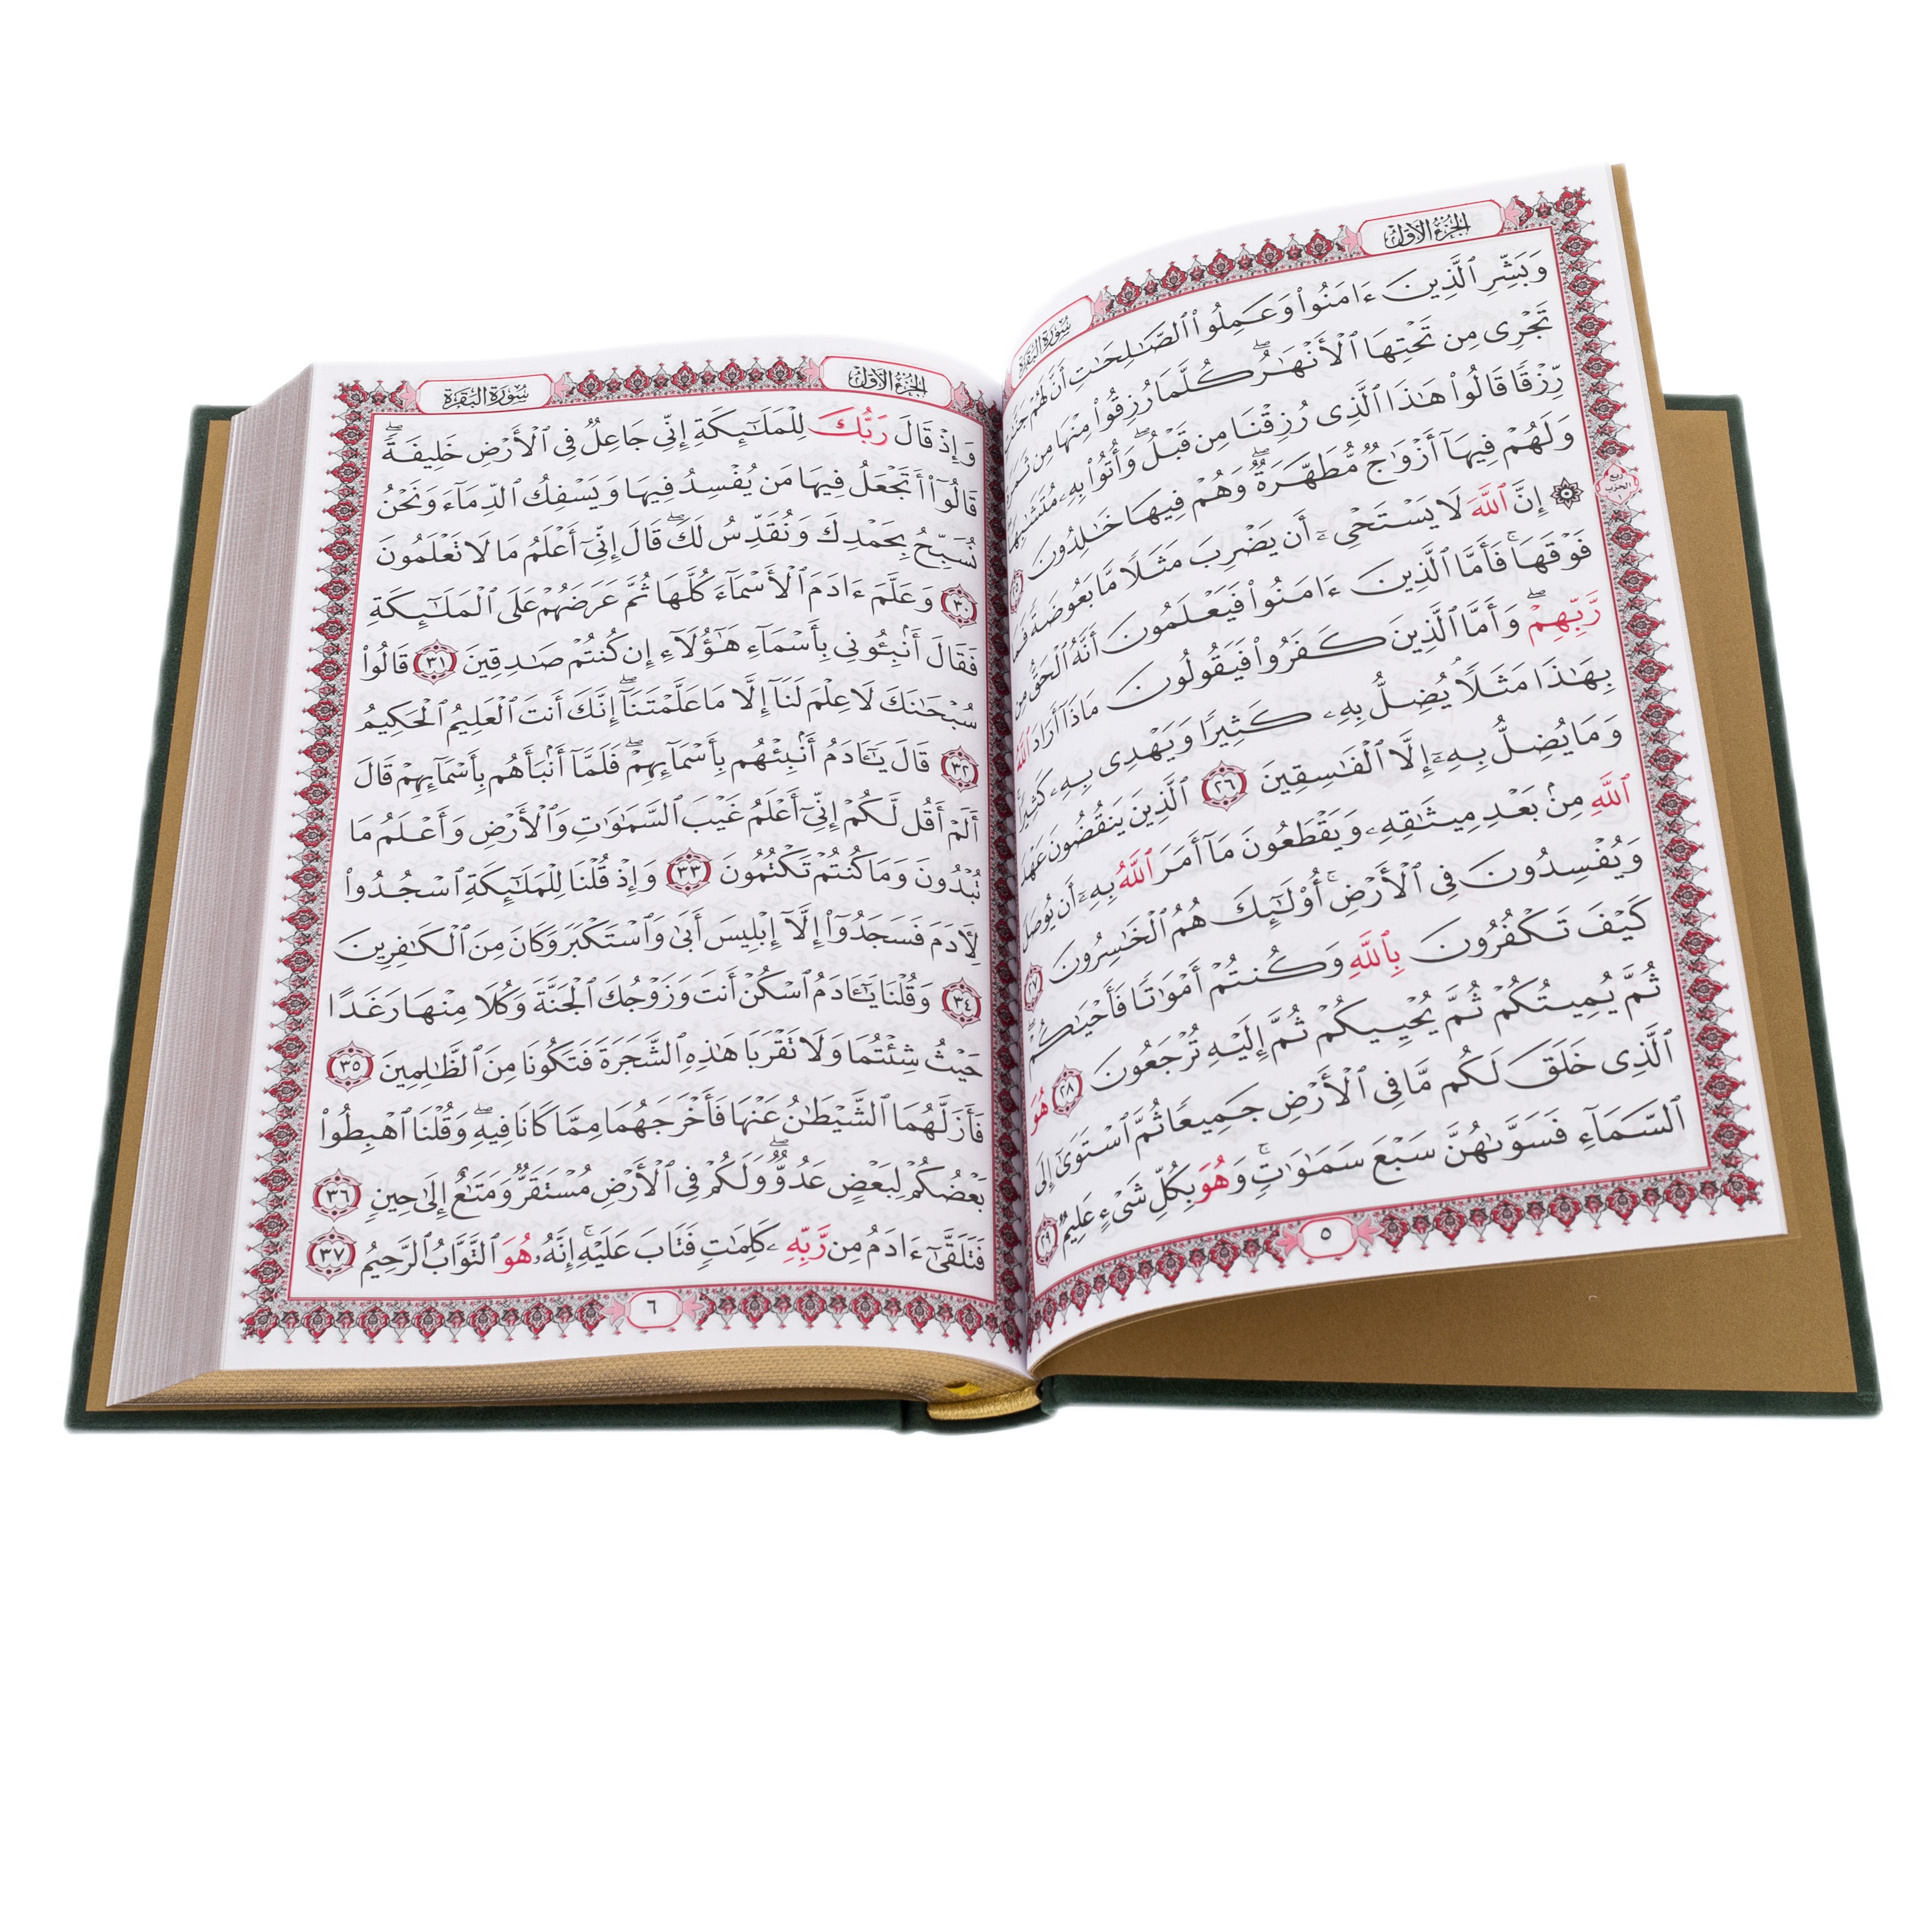 الجزء الأول
سورة البقرة
وَبَشِّرِ ٱلَّذِينَ ءَامَنُوا۟ وَعَمِلُوا۟ ٱلصَّـٰلِحَـٰتِ أَنَّ لَهُمْ جَنَّـٰتٍ
تَجْرِى مِن تَحْتِهَا ٱلْأَنْهَـٰرُ ۖ كُلَّمَا رُزِقُوا۟ مِنْهَا مِن ثَمَرَةٍ
رِّزْقًا قَالُوا۟ هَـٰذَا ٱلَّذِى رُزِقْنَا مِن قَبْلُ ۖ وَأُتُوا۟ بِهِۦ مُتَشَـٰبِهًا
وَلَهُمْ فِيهَآ أَزْوَٰجٌ مُّطَهَّرَةٌ ۖ وَهُمْ فِيهَا خَـٰلِدُونَ
ربع الحزب ١
۞ إِنَّ ٱللَّهَ لَا يَسْتَحْىِۦٓ أَن يَضْرِبَ مَثَلًا مَّا بَعُوضَةً فَمَا
فَوْقَهَا ۚ فَأَمَّا ٱلَّذِينَ ءَامَنُوا۟ فَيَعْلَمُونَ أَنَّهُ ٱلْحَقُّ مِن
رَّبِّهِمْ ۖ وَأَمَّا ٱلَّذِينَ كَفَرُوا۟ فَيَقُولُونَ مَاذَآ أَرَادَ ٱللَّهُ
بِهَـٰذَا مَثَلًا يُضِلُّ بِهِۦ كَثِيرًا وَيَهْدِى بِهِۦ كَثِيرًا
وَمَا يُضِلُّ بِهِۦٓ إِلَّا ٱلْفَـٰسِقِينَ ٢٦ ٱلَّذِينَ يَنقُضُونَ عَهْدَ
ٱللَّهِ مِنۢ بَعْدِ مِيثَـٰقِهِۦ وَيَقْطَعُونَ مَآ أَمَرَ ٱللَّهُ بِهِۦٓ أَن يُوصَلَ
وَيُفْسِدُونَ فِى ٱلْأَرْضِ ۚ أُو۟لَـٰٓئِكَ هُمُ ٱلْخَـٰسِرُونَ ٢٧
كَيْفَ تَكْفُرُونَ بِٱللَّهِ وَكُنتُمْ أَمْوَٰتًا فَأَحْيَـٰكُمْ ۖ
ثُمَّ يُمِيتُكُمْ ثُمَّ يُحْيِيكُمْ ثُمَّ إِلَيْهِ تُرْجَعُونَ ٢٨ هُوَ
ٱلَّذِى خَلَقَ لَكُم مَّا فِى ٱلْأَرْضِ جَمِيعًا ثُمَّ ٱسْتَوَىٰٓ إِلَى
ٱلسَّمَآءِ فَسَوَّىٰهُنَّ سَبْعَ سَمَـٰوَٰتٍ ۚ وَهُوَ بِكُلِّ شَىْءٍ عَلِيمٌ ٢٩
٥
الجزء الأول
سورة البقرة
وَإِذْ قَالَ رَبُّكَ لِلْمَلَـٰٓئِكَةِ إِنِّى جَاعِلٌ فِى ٱلْأَرْضِ خَلِيفَةً ۖ
قَالُوٓا۟ أَتَجْعَلُ فِيهَا مَن يُفْسِدُ فِيهَا وَيَسْفِكُ ٱلدِّمَآءَ وَنَحْنُ
نُسَبِّحُ بِحَمْدِكَ وَنُقَدِّسُ لَكَ ۖ قَالَ إِنِّىٓ أَعْلَمُ مَا لَا تَعْلَمُونَ
٣٠ وَعَلَّمَ ءَادَمَ ٱلْأَسْمَآءَ كُلَّهَا ثُمَّ عَرَضَهُمْ عَلَى ٱلْمَلَـٰٓئِكَةِ
فَقَالَ أَنۢبِـُٔونِى بِأَسْمَآءِ هَـٰٓؤُلَآءِ إِن كُنتُمْ صَـٰدِقِينَ ٣١ قَالُوا۟
سُبْحَـٰنَكَ لَا عِلْمَ لَنَآ إِلَّا مَا عَلَّمْتَنَآ ۖ إِنَّكَ أَنتَ ٱلْعَلِيمُ ٱلْحَكِيمُ
٣٢ قَالَ يَـٰٓـَٔادَمُ أَنۢبِئْهُم بِأَسْمَآئِهِمْ ۖ فَلَمَّآ أَنۢبَأَهُم بِأَسْمَآئِهِمْ قَالَ
أَلَمْ أَقُل لَّكُمْ إِنِّىٓ أَعْلَمُ غَيْبَ ٱلسَّمَـٰوَٰتِ وَٱلْأَرْضِ وَأَعْلَمُ مَا
تُبْدُونَ وَمَا كُنتُمْ تَكْتُمُونَ ٣٣ وَإِذْ قُلْنَا لِلْمَلَـٰٓئِكَةِ ٱسْجُدُوا۟
لِـَٔادَمَ فَسَجَدُوٓا۟ إِلَّآ إِبْلِيسَ أَبَىٰ وَٱسْتَكْبَرَ وَكَانَ مِنَ ٱلْكَـٰفِرِينَ
٣٤ وَقُلْنَا يَـٰٓـَٔادَمُ ٱسْكُنْ أَنتَ وَزَوْجُكَ ٱلْجَنَّةَ وَكُلَا مِنْهَا رَغَدًا
حَيْثُ شِئْتُمَا وَلَا تَقْرَبَا هَـٰذِهِ ٱلشَّجَرَةَ فَتَكُونَا مِنَ ٱلظَّـٰلِمِينَ ٣٥
فَأَزَلَّهُمَا ٱلشَّيْطَـٰنُ عَنْهَا فَأَخْرَجَهُمَا مِمَّا كَانَا فِيهِ ۖ وَقُلْنَا ٱهْبِطُوا۟
بَعْضُكُمْ لِبَعْضٍ عَدُوٌّ ۖ وَلَكُمْ فِى ٱلْأَرْضِ مُسْتَقَرٌّ وَمَتَـٰعٌ إِلَىٰ حِينٍ ٣٦
فَتَلَقَّىٰٓ ءَادَمُ مِن رَّبِّهِۦ كَلِمَـٰتٍ فَتَابَ عَلَيْهِ ۚ إِنَّهُۥ هُوَ ٱلتَّوَّابُ ٱلرَّحِيمُ ٣٧
٦